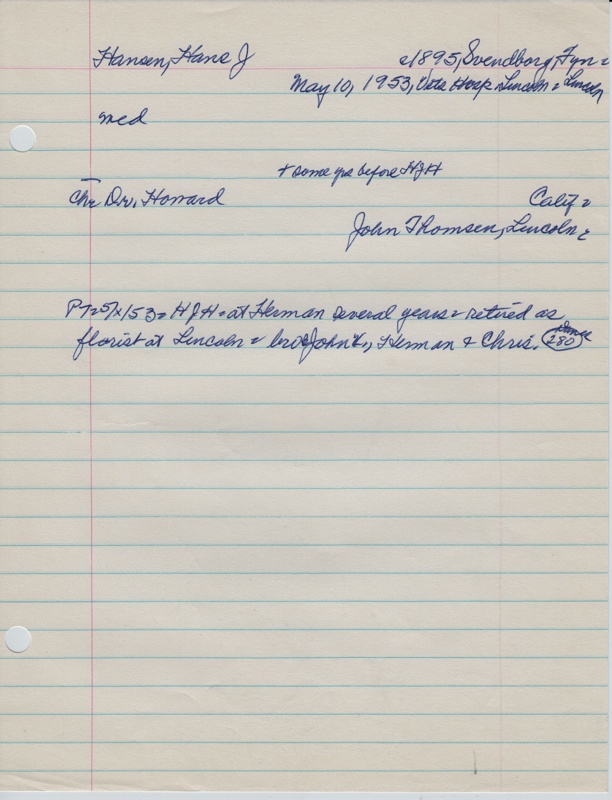 Hansen, Hans J c1895, Svendborg, Fyn =
May 10, 1953, Vets Hosp Lincoln = Lincoln
med
+ some yrs before HJH
Ch= Dr, Howard Calif =
John Thomsen, Lincoln =
HJH = at Herman several years = retired as
florist at Lincoln = bros John, Herman + Chris. 280